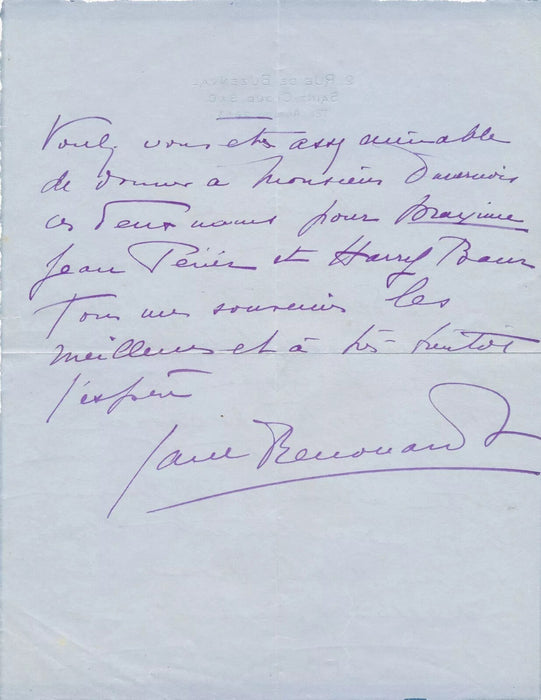 2, RUE DE BUZENVAL
SAINT-CLOUD S.&O.
Voulez vous etre assez aimable
de donner à Monsieur Duvernois
ces deux noms pour Maxime
Jean Périer et Harry Baur
Tous mes souvenirs les
meilleurs et à très bientôt
j'espère
Jane Renouardt